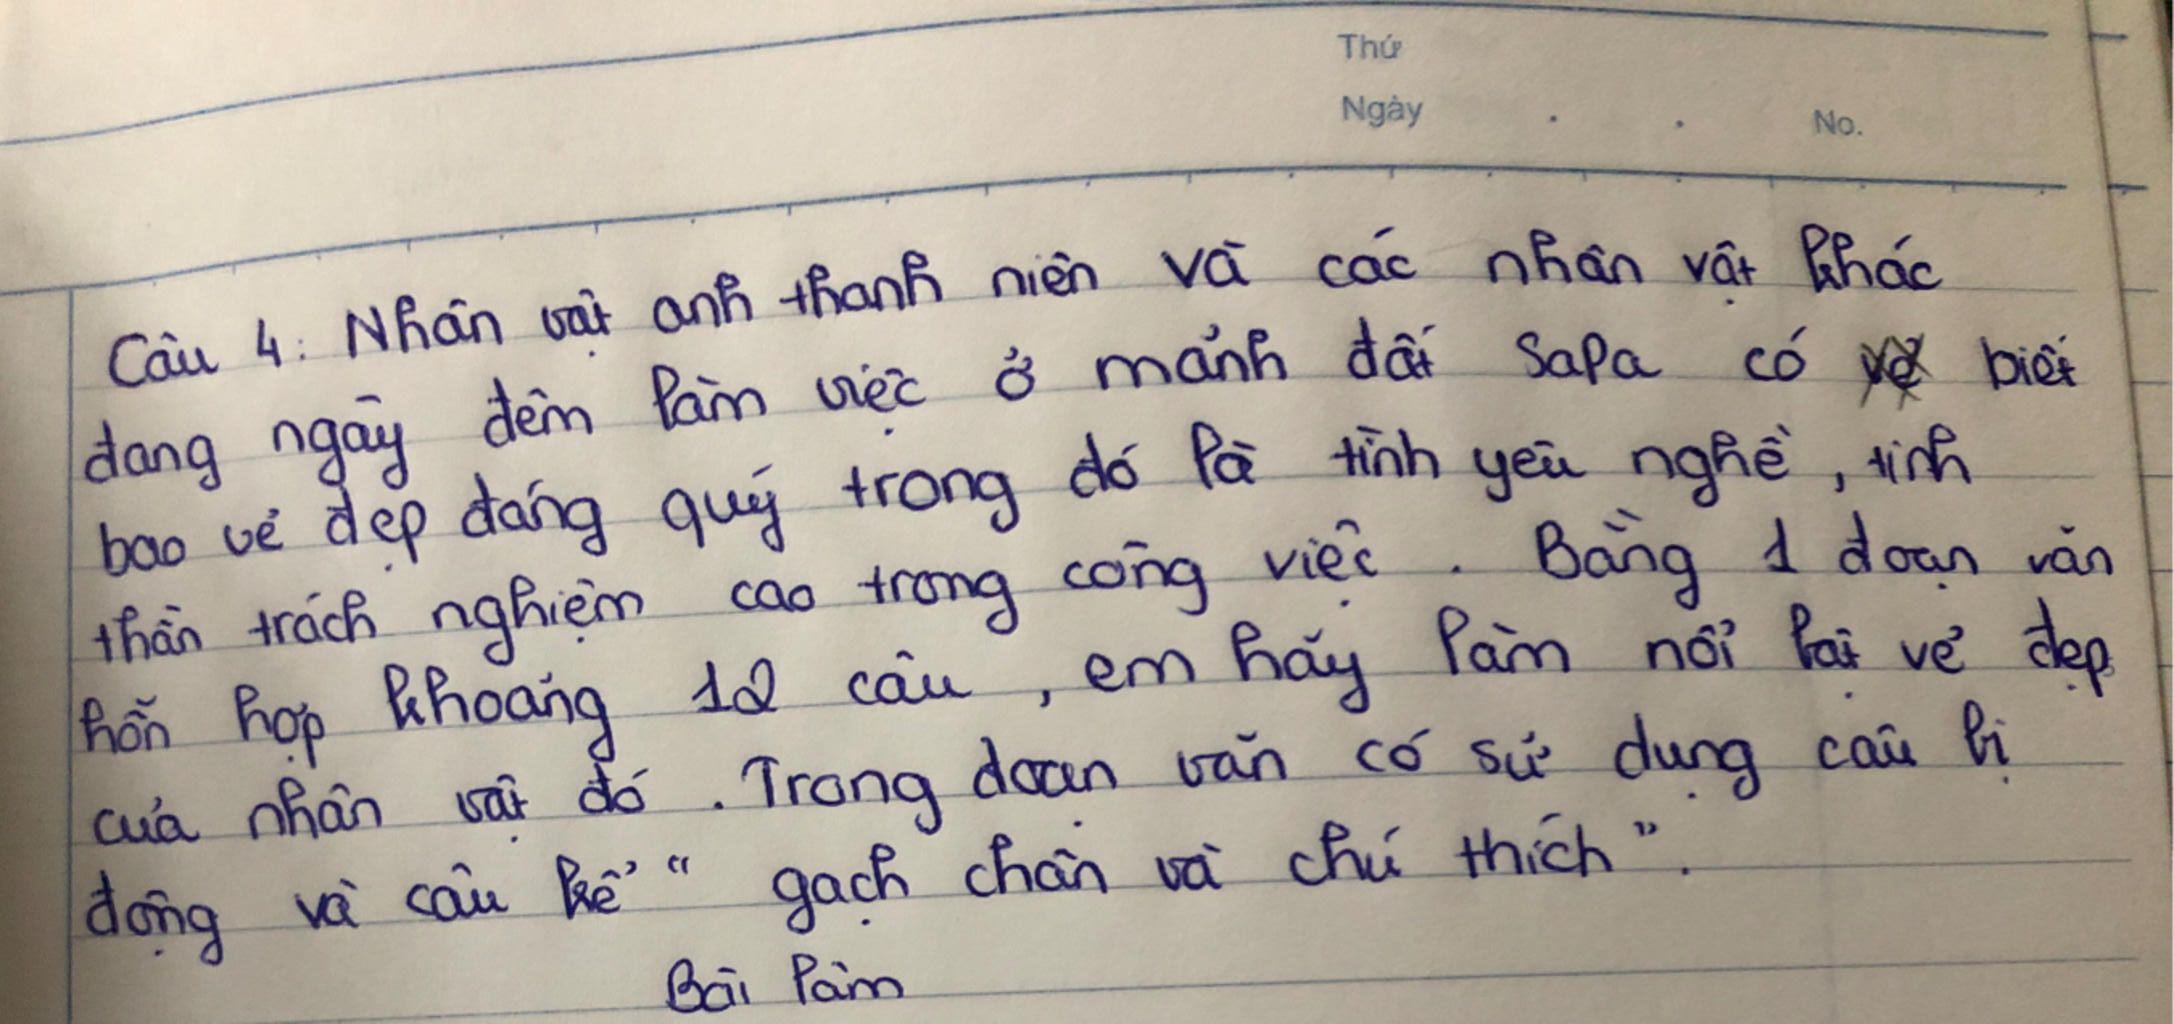 Thứ
Ngày . . No.
Câu 4: Nhân vật anh thanh niên và các nhân vật khác
đang ngày đêm làm việc ở mảnh đất Sapa có biết
bao vẻ đẹp đáng quý trong đó là tình yêu nghề, tinh
thần trách nghiệm cao trong công việc. Bằng 1 đoạn văn
hỗn hợp khoảng 12 câu, em hãy làm nổi bật vẻ đẹp
của nhân vật đó. Trong đoạn văn có sử dụng câu bị
động và câu kể "gạch chân và chú thích".
Bài làm